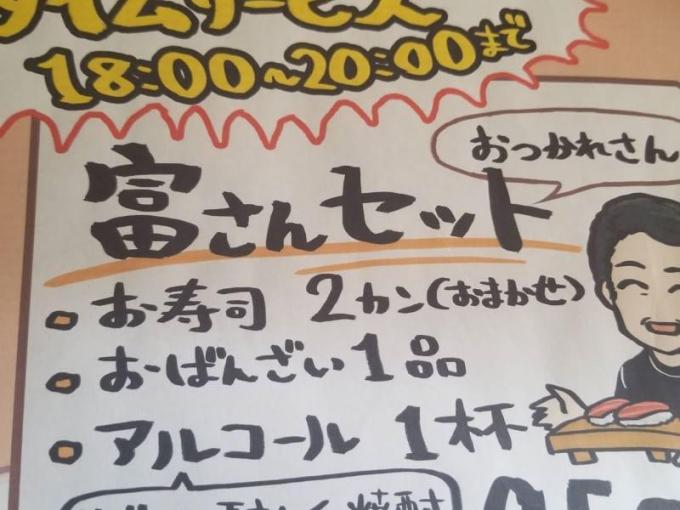 タイムサービス
18:00~20:00まで
おつかれさん
富さんセット
お寿司 2カン(おまかせ)
おばんざい1品
アルコール 1杯
焼酎